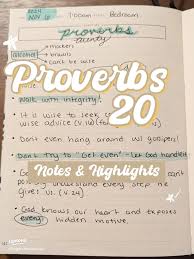 NOV 16
1:00am Bedroom
proverbs
alcohol → mockers
→ brawls
can't be wise
Proverbs
20
Walk with integrity!
It is wise to seek
wise advice (v.18)
Don't even hang around w/ gossipers!
Don't try to "Get even" let God handle
Notes & Highlights
understand every step he
give us. (v. 24)
God knows our heart and exposes
every hidden motive.